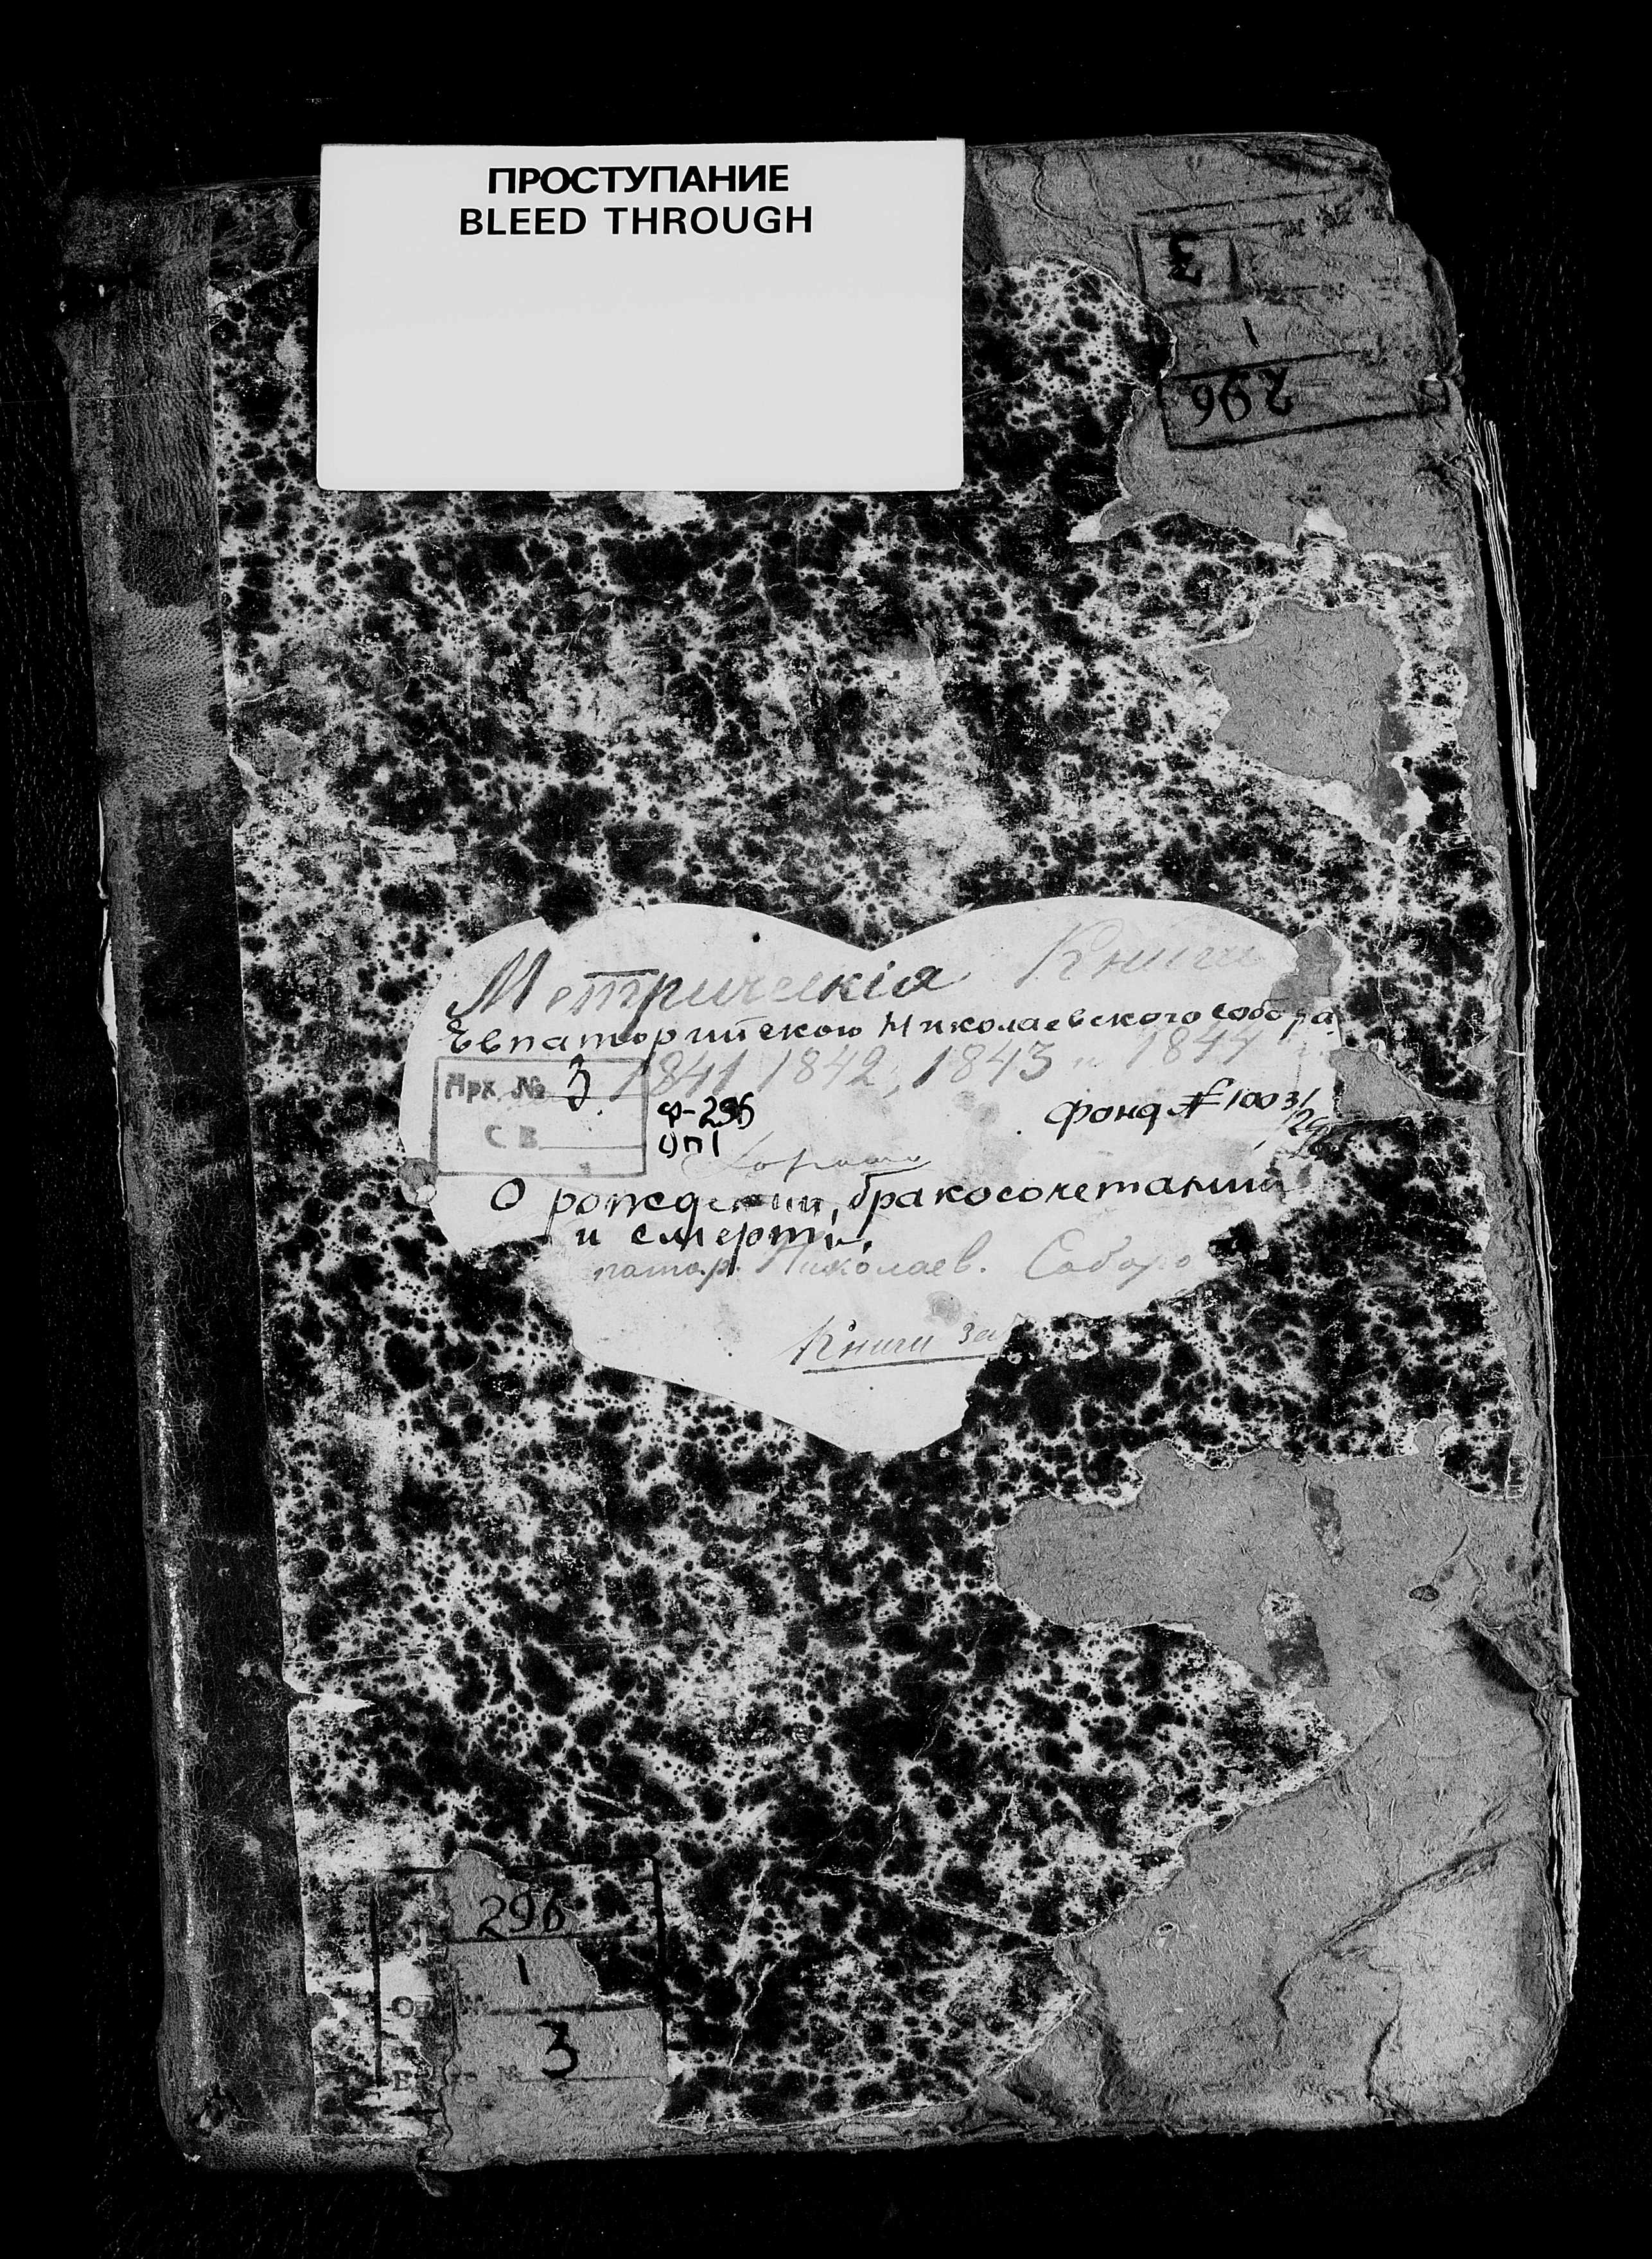 ПРОСТУПАНИЕ
BLEED THROUGH
3
1
296
Метрическія Книги
Евпаторийскою Николаевского собора
1841 1842, 1843 и 1844
Арх. № 3
ф-296
оп 1
Фонд № 10031
296
С В
О рождении, бракосочетании
и смерти,
патор. Николаев. Собора
Книги
296
1
3